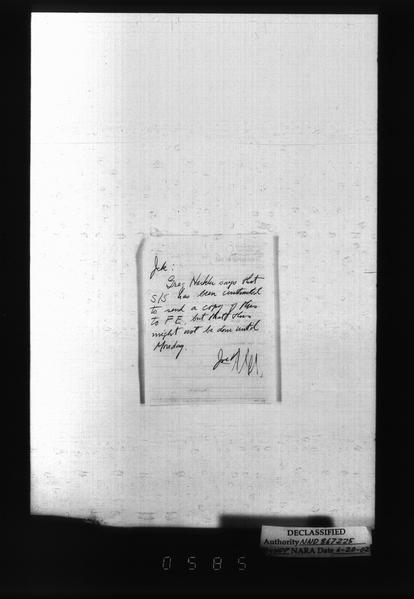 Jck:
Greg says that
S/S has been instructed
to send a copy of this
to FE, but that this
might not be done until
Monday.
Joe
DECLASSIFIED
Authority NND 867225
NARA Date 6-20-02
0585